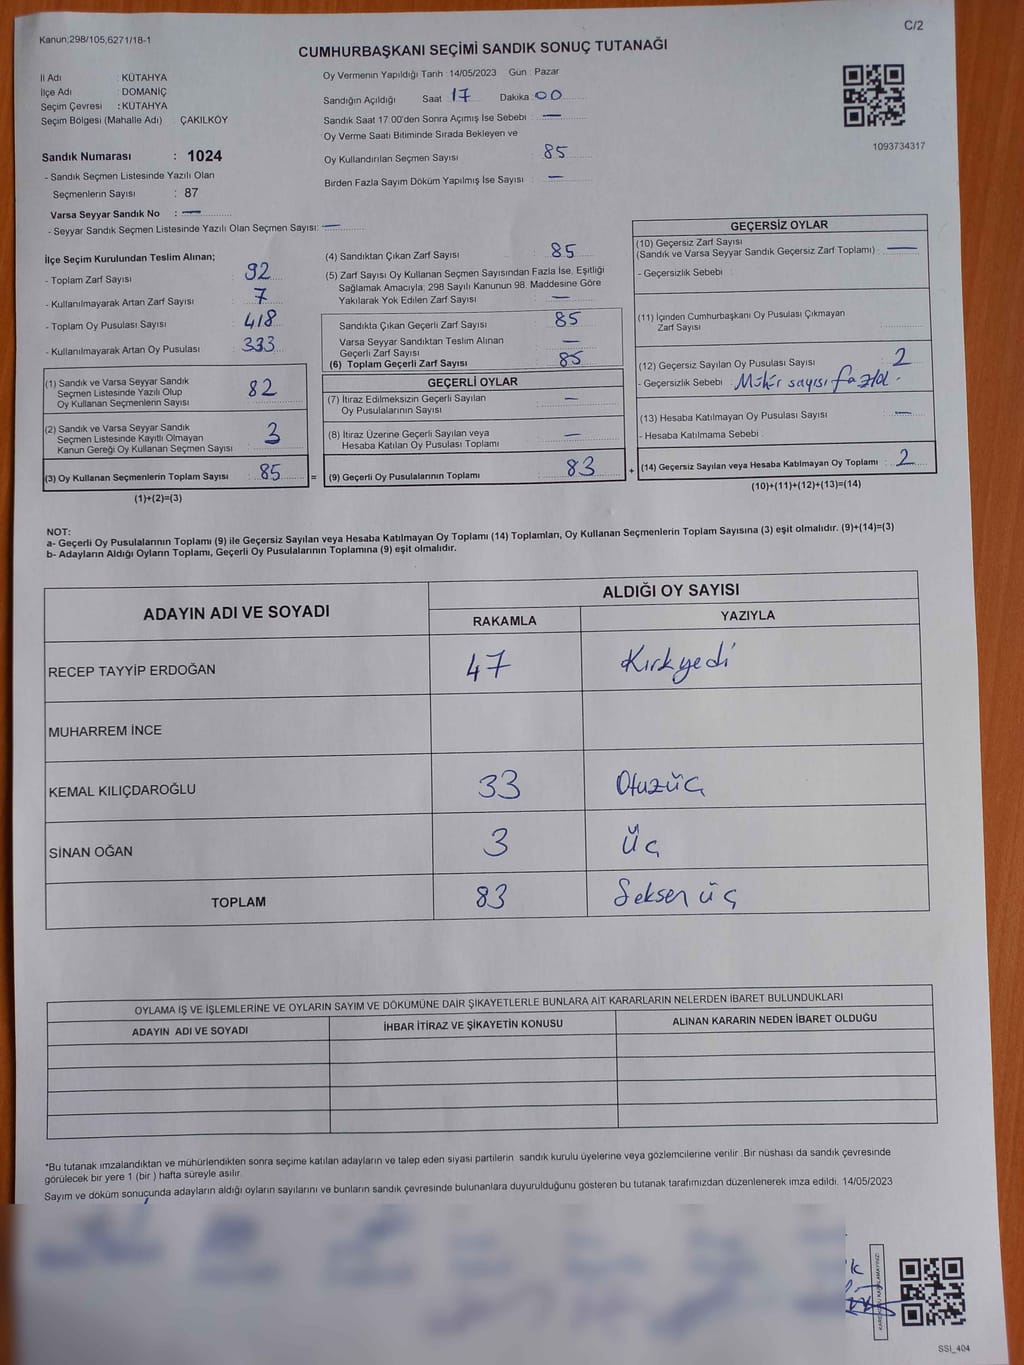 Kanun;298/105,6271/18-1
C/2
CUMHURBAŞKANI SEÇİMİ SANDIK SONUÇ TUTANAĞI
İl Adı : KÜTAHYA
İlçe Adı : DOMANİÇ
Seçim Çevresi : KÜTAHYA
Seçim Bölgesi (Mahalle Adı) : ÇAKILKÖY
Sandık Numarası : 1024
- Sandık Seçmen Listesinde Yazılı Olan
Seçmenlerin Sayısı : 87
Varsa Seyyar Sandık No : —
- Seyyar Sandık Seçmen Listesinde Yazılı Olan Seçmen Sayısı: —
Oy Vermenin Yapıldığı Tarih : 14/05/2023 Gün : Pazar
Sandığın Açıldığı Saat 17 Dakika 00
Sandık Saat 17:00'den Sonra Açımış İse Sebebi : —
Oy Verme Saati Bitiminde Sırada Bekleyen ve
Oy Kullandırılan Seçmen Sayısı : 85
Birden Fazla Sayım Döküm Yapılmış İse Sayısı : —
1093734317
İlçe Seçim Kurulundan Teslim Alınan;
- Toplam Zarf Sayısı : 92
- Kullanılmayarak Artan Zarf Sayısı : 7
- Toplam Oy Pusulası Sayısı : 418
- Kullanılmayarak Artan Oy Pusulası : 333
(1) Sandık ve Varsa Seyyar Sandık
Seçmen Listesinde Yazılı Olup
Oy Kullanan Seçmenlerin Sayısı : 82
(2) Sandık ve Varsa Seyyar Sandık
Seçmen Listesinde Kayıtlı Olmayan
Kanun Gereği Oy Kullanan Seçmen Sayısı : 3
(3) Oy Kullanan Seçmenlerin Toplam Sayısı : 85 =
(1)+(2)=(3)
(4) Sandıktan Çıkan Zarf Sayısı : 85
(5) Zarf Sayısı Oy Kullanan Seçmen Sayısından Fazla İse, Eşitliği
Sağlamak Amacıyla; 298 Sayılı Kanunun 98. Maddesine Göre
Yakılarak Yok Edilen Zarf Sayısı : —
Sandıkta Çıkan Geçerli Zarf Sayısı : 85
Varsa Seyyar Sandıktan Teslim Alınan
Geçerli Zarf Sayısı : —
(6) Toplam Geçerli Zarf Sayısı : 85
GEÇERLİ OYLAR
(7) İtiraz Edilmeksizin Geçerli Sayılan
Oy Pusulalarının Sayısı : —
(8) İtiraz Üzerine Geçerli Sayılan veya
Hesaba Katılan Oy Pusulası Toplamı : —
(9) Geçerli Oy Pusulalarının Toplamı : 83 +
GEÇERSİZ OYLAR
(10) Geçersiz Zarf Sayısı
(Sandık ve Varsa Seyyar Sandık Geçersiz Zarf Toplamı) : —
- Geçersizlik Sebebi :
(11) İçinden Cumhurbaşkanı Oy Pusulası Çıkmayan
Zarf Sayısı :
(12) Geçersiz Sayılan Oy Pusulası Sayısı : 2
- Geçersizlik Sebebi : Mühür sayısı fazla.
(13) Hesaba Katılmayan Oy Pusulası Sayısı : —
- Hesaba Katılmama Sebebi :
(14) Geçersiz Sayılan veya Hesaba Katılmayan Oy Toplamı : 2
(10)+(11)+(12)+(13)=(14)
NOT:
a- Geçerli Oy Pusulalarının Toplamı (9) ile Geçersiz Sayılan veya Hesaba Katılmayan Oy Toplamı (14) Toplamları, Oy Kullanan Seçmenlerin Toplam Sayısına (3) eşit olmalıdır. (9)+(14)=(3)
b- Adayların Aldığı Oyların Toplamı, Geçerli Oy Pusulalarının Toplamına (9) eşit olmalıdır.
ADAYIN ADI VE SOYADI
ALDIĞI OY SAYISI
RAKAMLA YAZIYLA
RECEP TAYYİP ERDOĞAN 47 Kırkyedi
MUHARREM İNCE
KEMAL KILIÇDAROĞLU 33 Otuzüç
SİNAN OĞAN 3 Üç
TOPLAM 83 Seksen üç
OYLAMA İŞ VE İŞLEMLERİNE VE OYLARIN SAYIM VE DÖKÜMÜNE DAİR ŞİKAYETLERLE BUNLARA AİT KARARLARIN NELERDEN İBARET BULUNDUKLARI
ADAYIN ADI VE SOYADI İHBAR İTİRAZ VE ŞİKAYETİN KONUSU ALINAN KARARIN NEDEN İBARET OLDUĞU
*Bu tutanak imzalandıktan ve mühürlendikten sonra seçime katılan adayların ve talep eden siyasi partilerin sandık kurulu üyelerine veya gözlemcilerine verilir. Bir nüshası da sandık çevresinde
görülecek bir yere 1 (bir ) hafta süreyle asılır.
Sayım ve döküm sonucunda adayların aldığı oyların sayılarını ve bunların sandık çevresinde bulunanlara duyurulduğunu gösteren bu tutanak tarafımızdan düzenlenerek imza edildi. 14/05/2023
SSİ_404